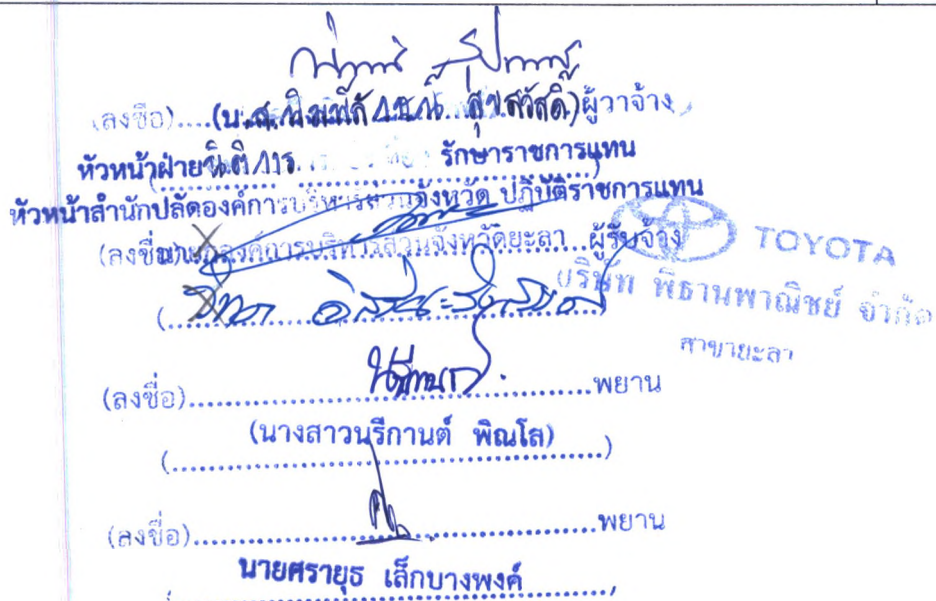 (ลงชื่อ)....(น.ส. สุขสวัสดิ์)ผู้ว่าจ้าง
หัวหน้าฝ่ายนิติการ รักษาราชการแทน
หัวหน้าสำนักปลัดองค์การบริหารส่วนจังหวัด ปฏิบัติราชการแทน
(ลงชื่อ)นายกองค์การบริหารส่วนจังหวัดยะลา...ผู้รับจ้าง
TOYOTA
บริษัท พิธานพาณิชย์ จำกัด
สาขายะลา
(ลงชื่อ)....................พยาน
(นางสาวนรีกานต์ พิณโล)
(....................)
(ลงชื่อ)....................พยาน
นายศรายุธ เล็กบางพงค์